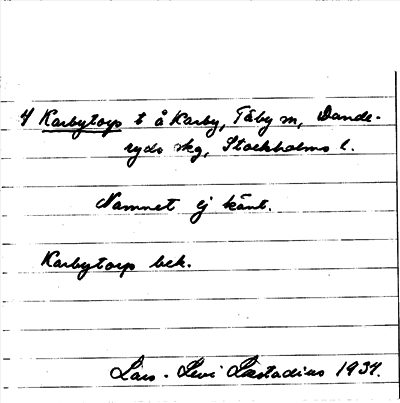 4 Karbytorp t å Karby, Täby sn, Dande-
ryds skg, Stockholms l.
Namnet ej känt.
Karbytorp bek.
Lars-Levi Læstadius 1934.